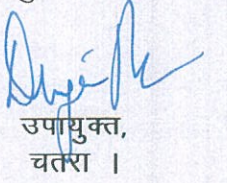 उपायुक्त,
चतरा ।